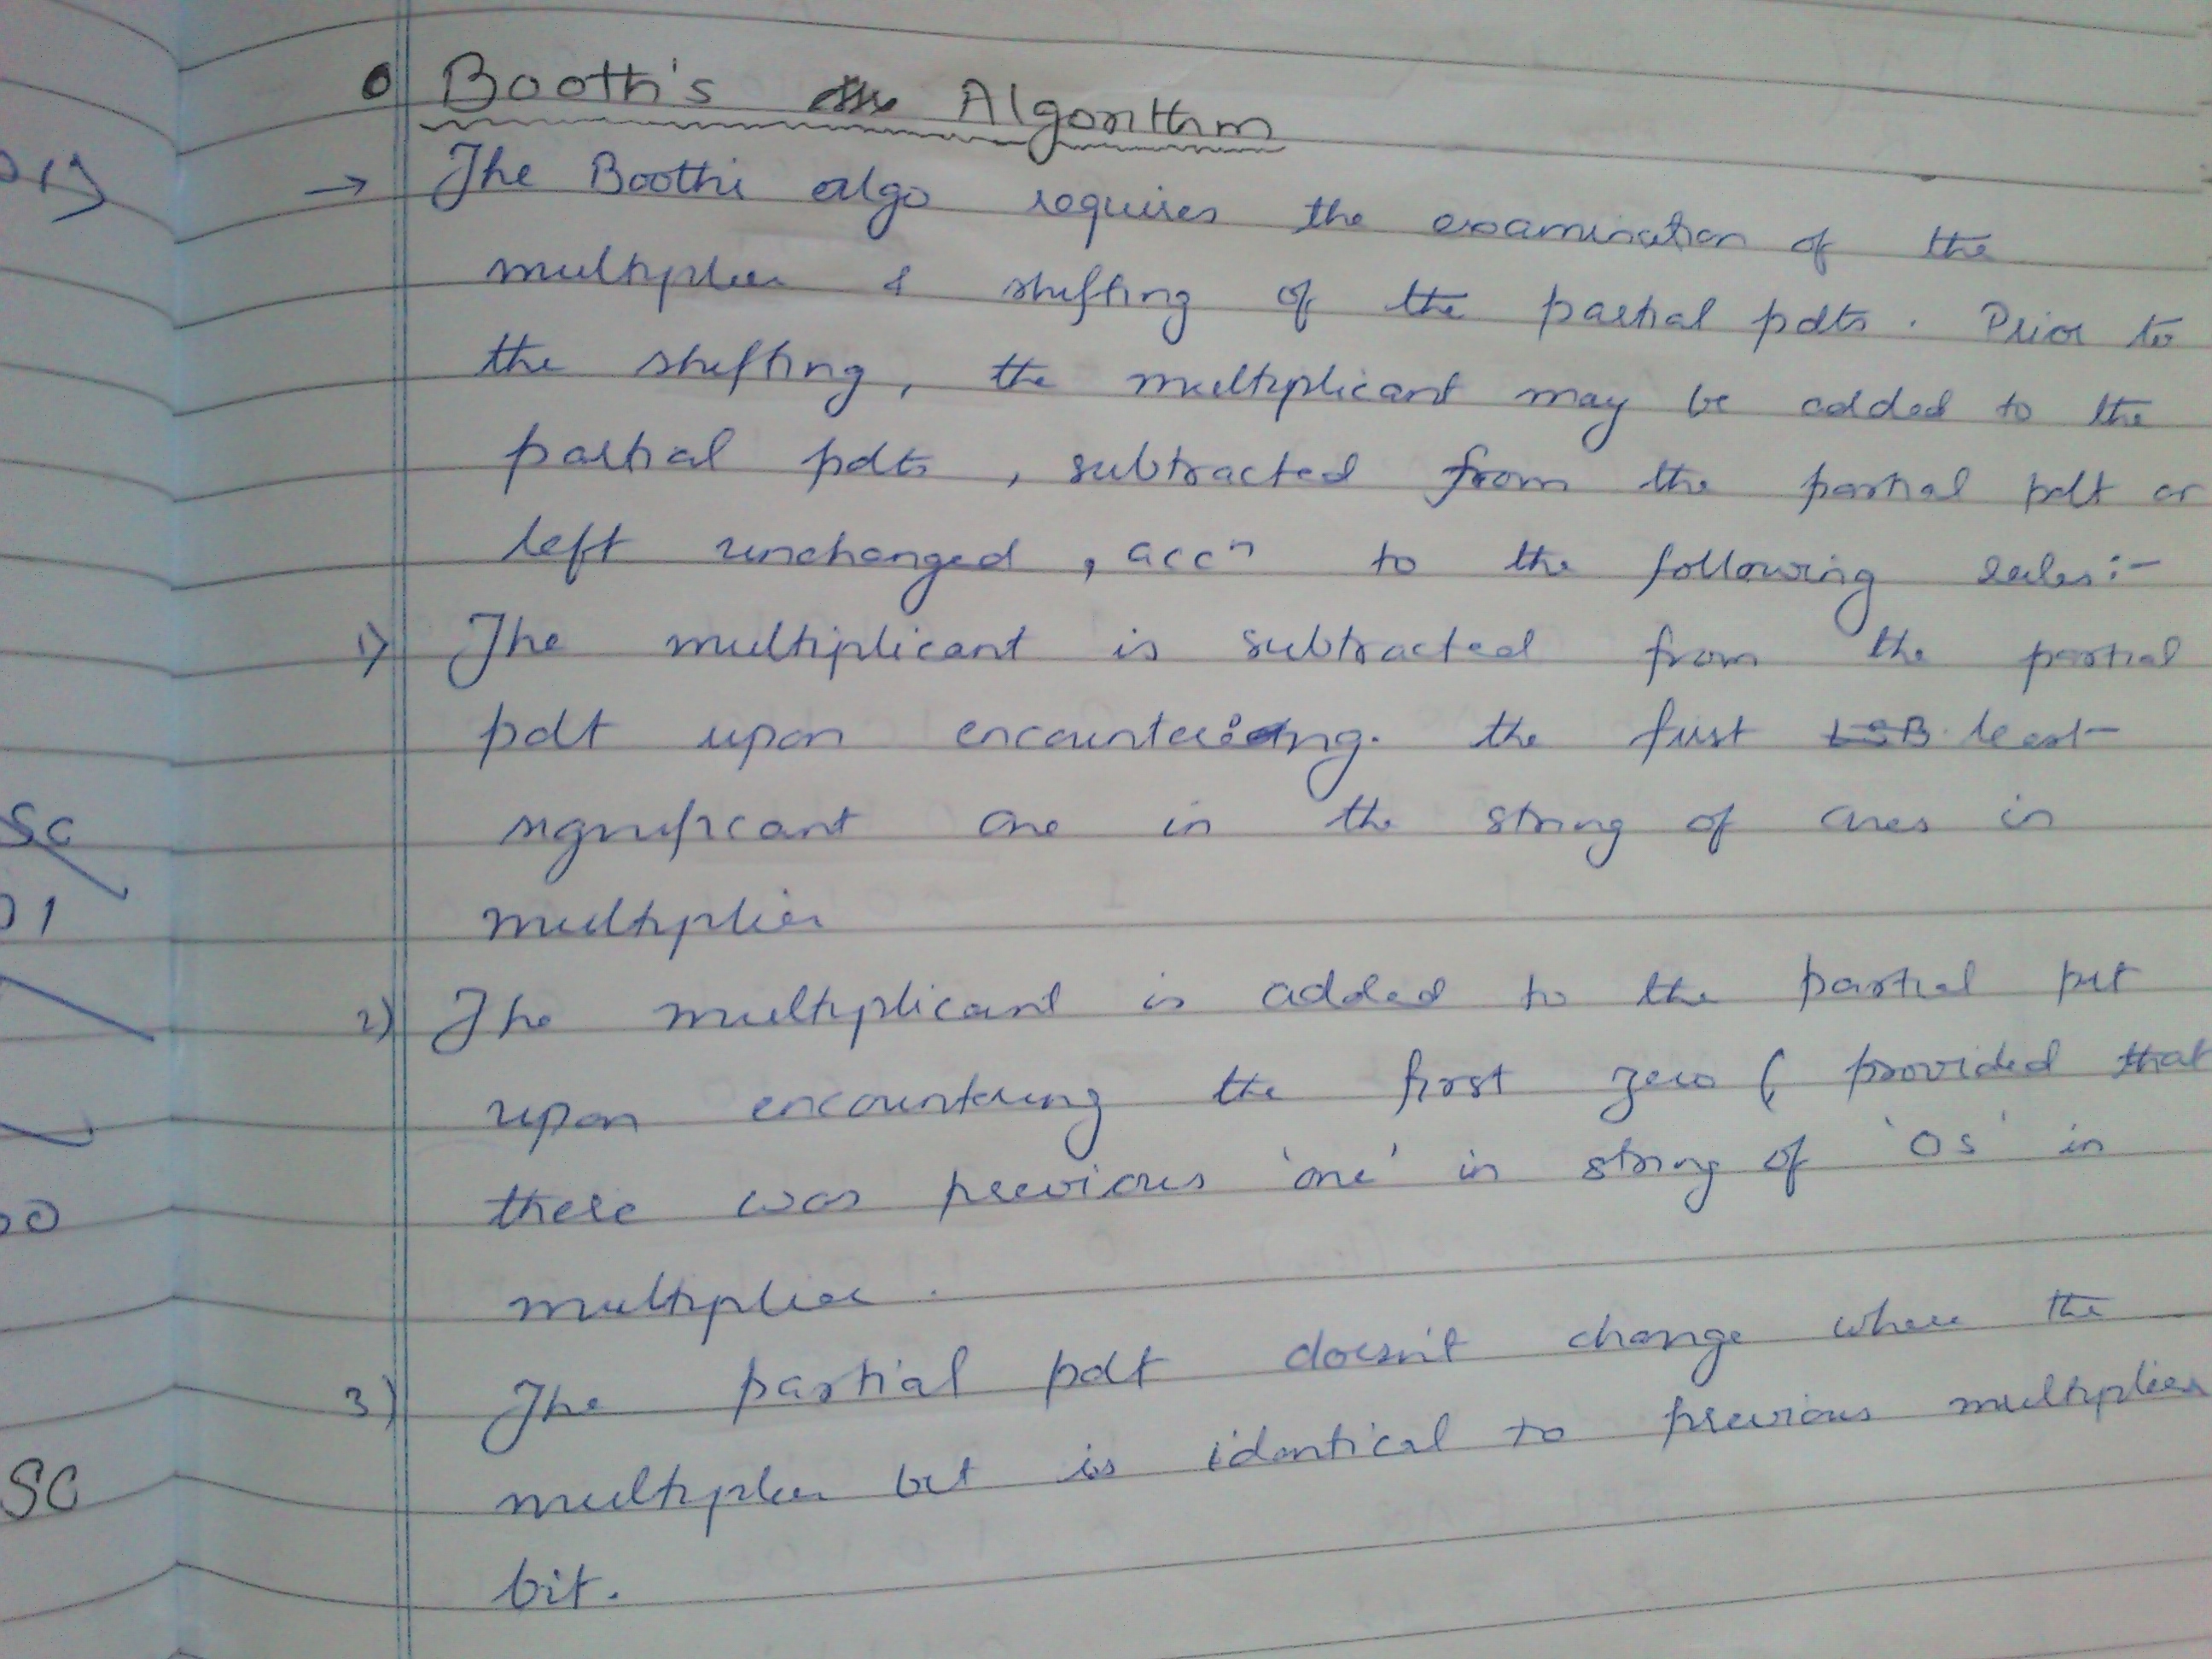 Booth's Algorithm
→ The Booths algo requires the examination of the
multiplier & shifting of the partial pdts. Prior to
the shifting, the multiplicant may be added to the
partial pdts, subtracted from the partial pdt or
left unchanged, accⁿ to the following rules:-
1) The multiplicant is subtracted from the partial
pdt upon encountering. the first LSB least-
significant one in the string of ones in
multiplier
2) The multiplicant is added to the partial pit
upon encountering the first zero ( provided that
there was previous 'one' in string of '0s' in
multiplier.
3) The partial pdt doesn't change where the
multiplier bit is identical to previous multiplier
bit.
1)
SC
01
00
SC